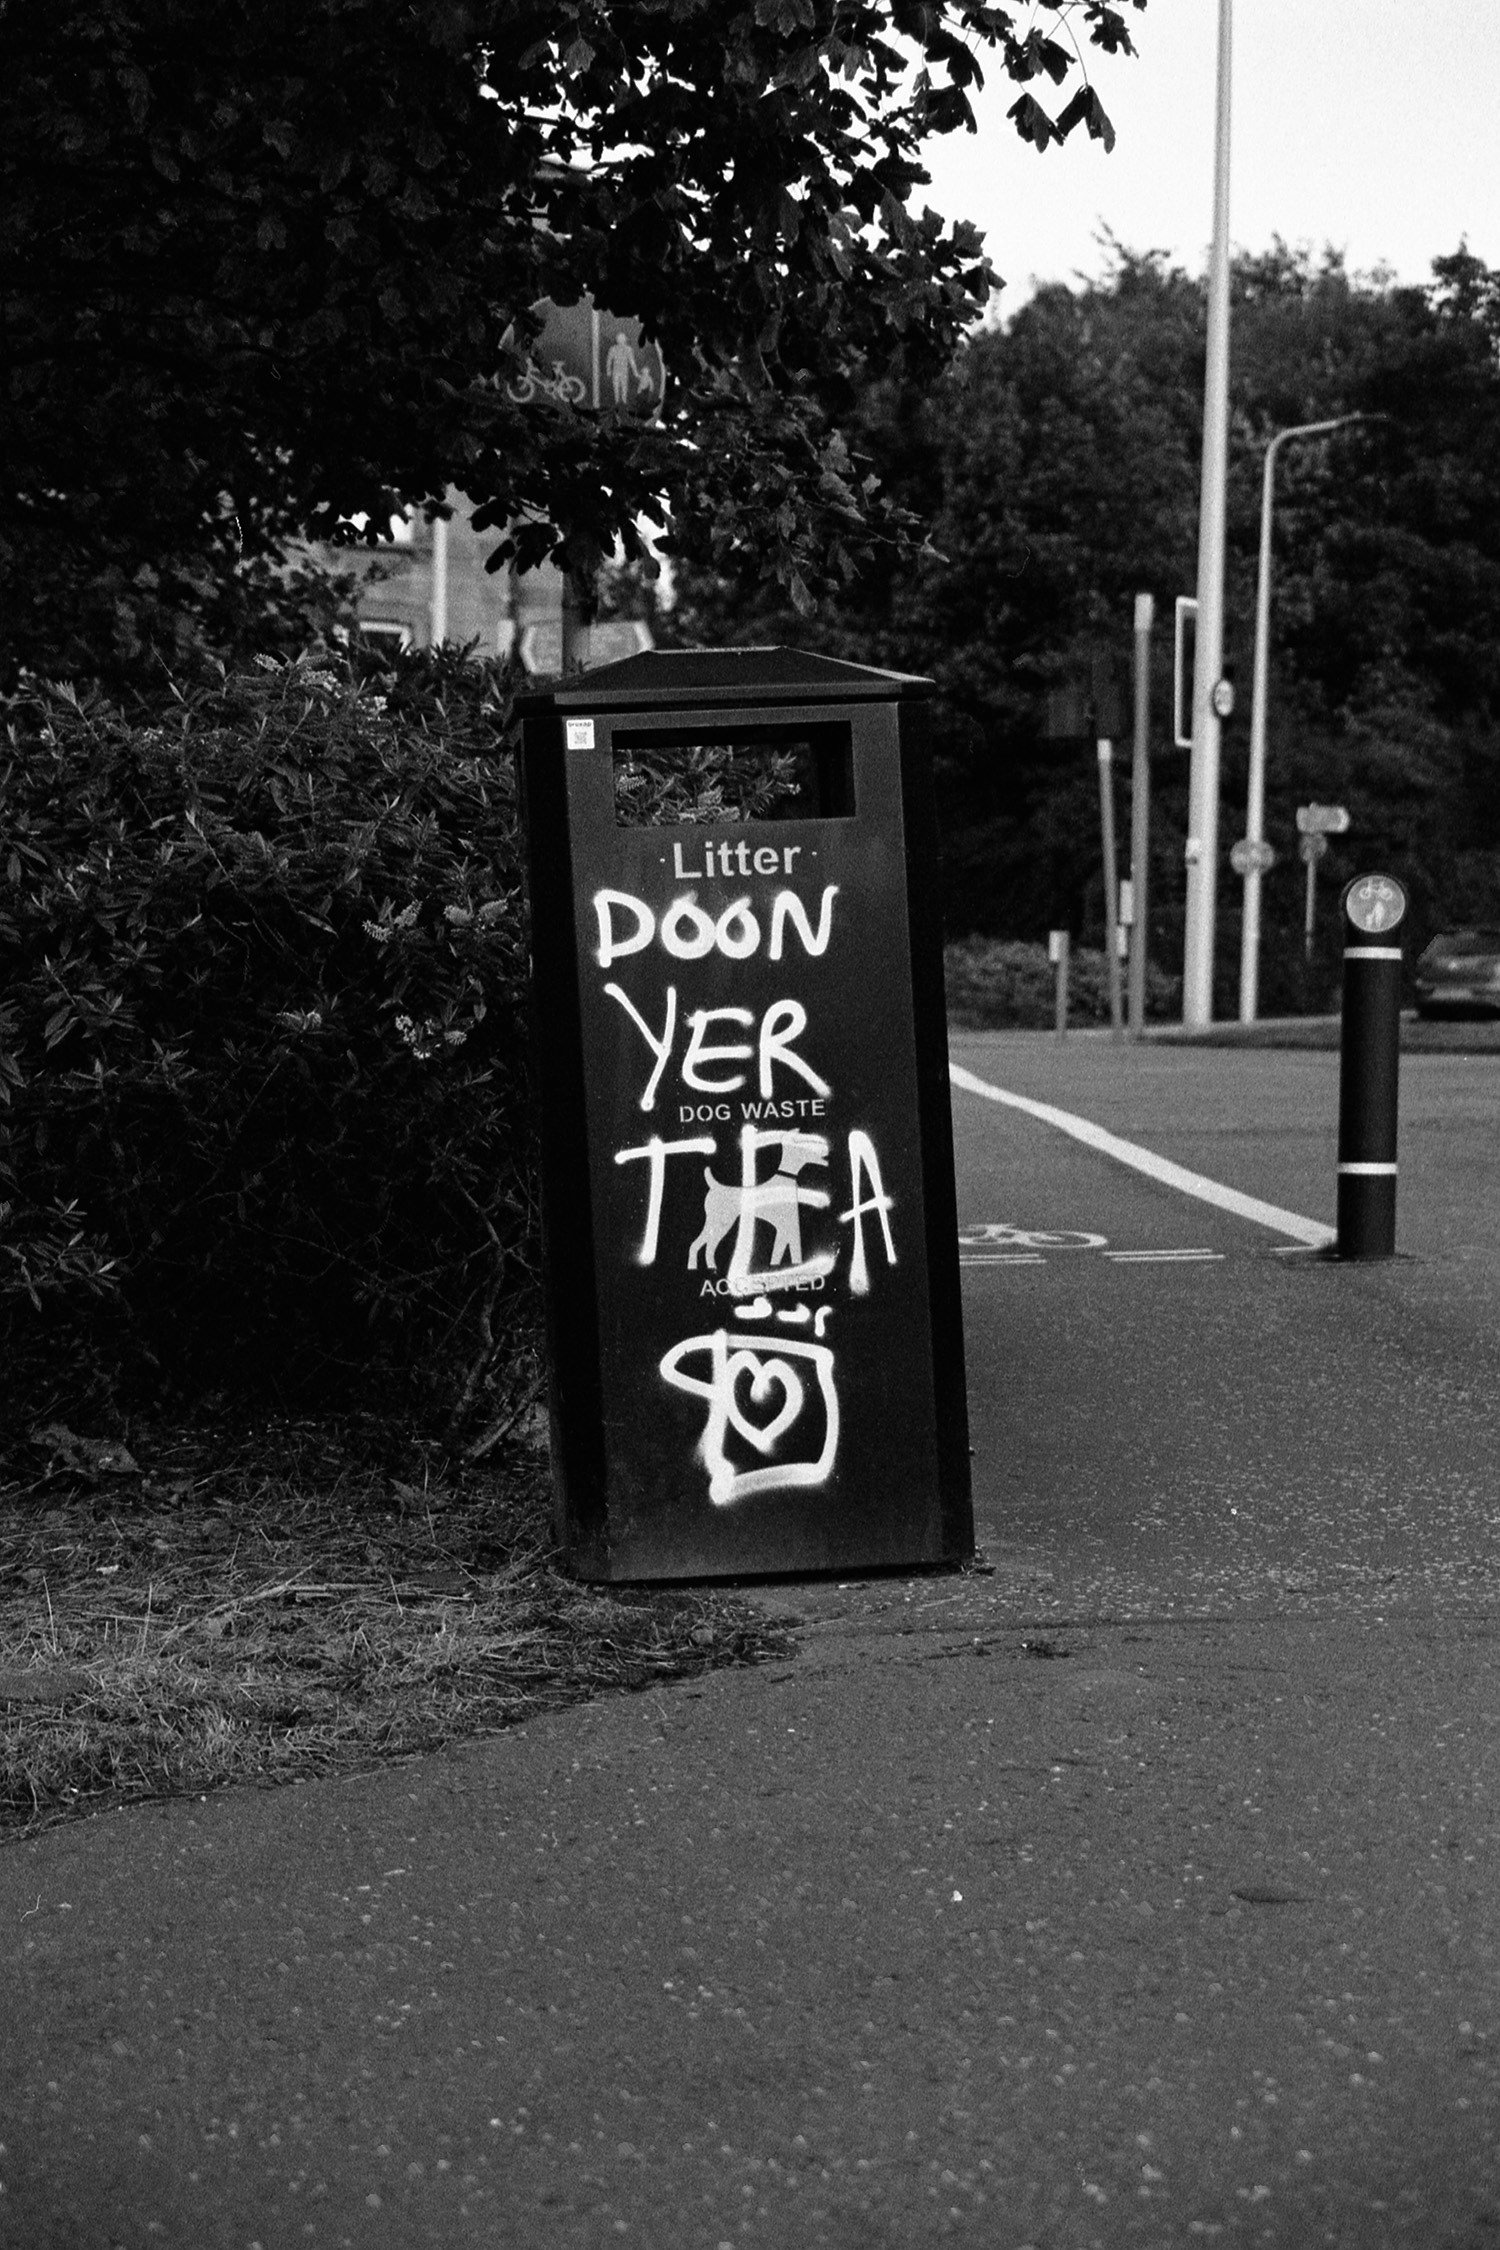 Litter
DOON
YER
DOG WASTE
TEA
ACCEPTED